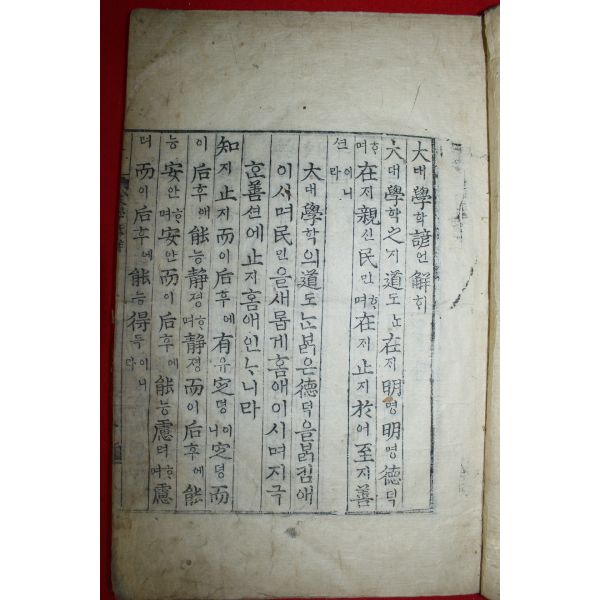 大대學학諺언解ᄒᆡ
大대學학之지道도ᄂᆞᆫ在ᄌᆡ明명明명德덕
ᄒᆞ며在ᄌᆡ親신民민ᄒᆞ며在ᄌᆡ止지於어至지善
션이니라
大대學학의道도ᄂᆞᆫᄇᆞᆰ은德덕을ᄇᆞᆰ킴애
이시며民민을새롭게홈애이시며지극
ᄒᆞᆫ善션에止지홈애인ᄂᆞ니라
知지止지而이后후에有유定뎡이니定뎡而
이后후에能능靜졍ᄒᆞ며靜졍而이后후에能
능安안ᄒᆞ며安안而이后후에能능慮려ᄒᆞ며慮
려而이后후에能능得득이니라